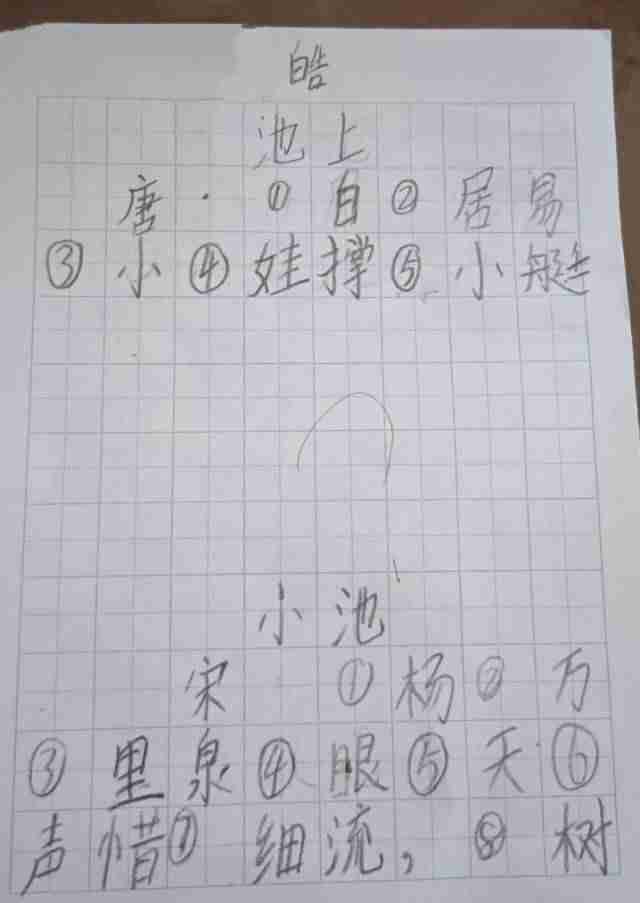 皓
池上
唐·①白②居易
③小④娃撑⑤小艇
小池
宋 ①杨②万
③里泉④眼⑤天⑥
声惜⑦细流，⑧树